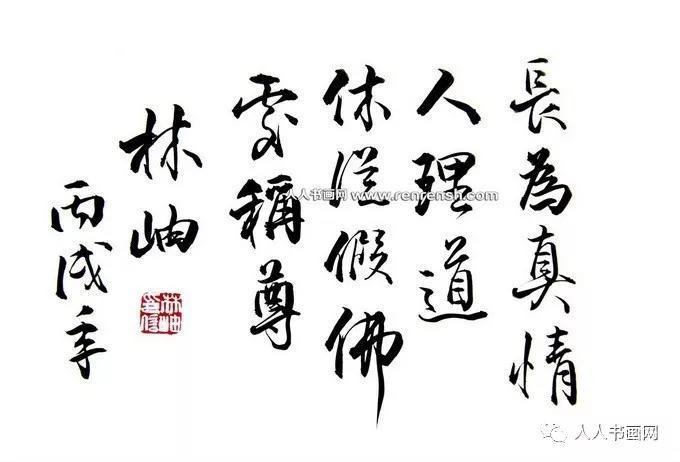 長為真情
人理道
休從假佛
處稱尊
林岫
丙戌年
林岫
人人书画网 www.renrensh.com
人人书画网